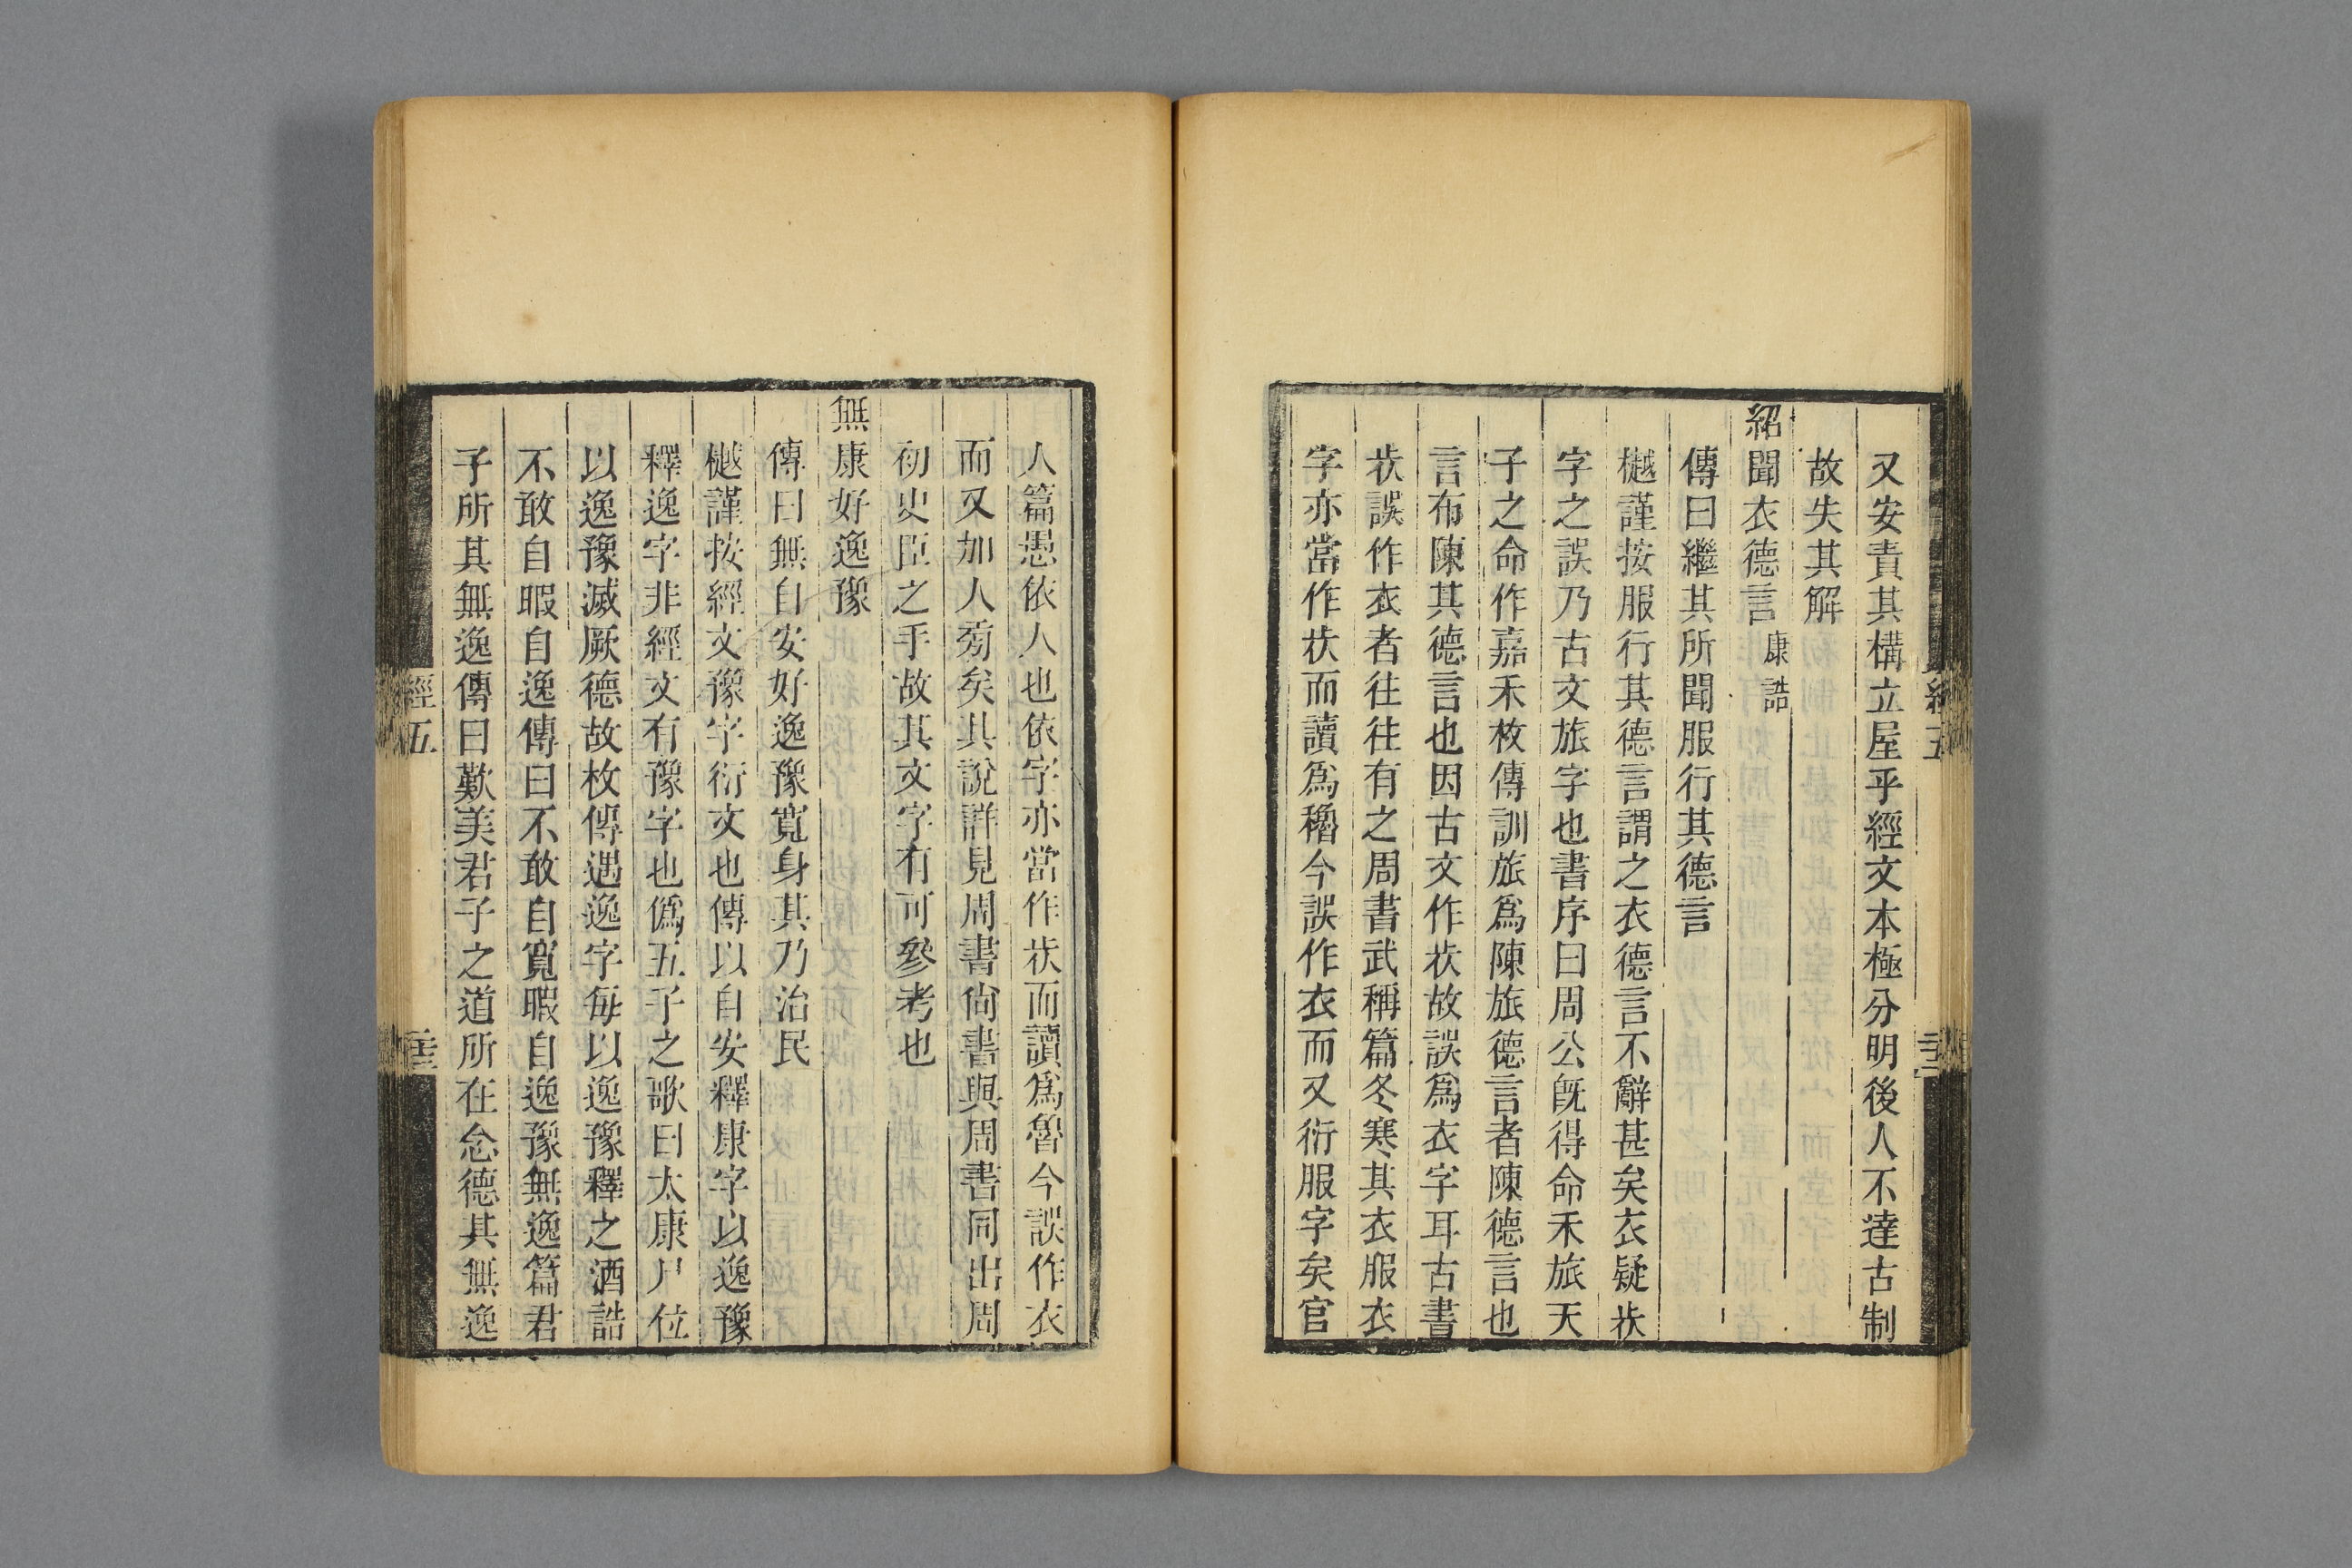 又安責其構立屋乎經文本極分明後人不達古制
故失其解
紹聞衣德言康誥
傳曰繼其所聞服行其德言
樾謹按服行其德言謂之衣德言不辭甚矣衣疑㫃
字之誤乃古文旅字也書序曰周公旣得命禾旅天
子之命作嘉禾枚傳訓旅爲陳旅德言者陳德言也
言布陳其德言也因古文作㫃故誤爲衣字耳古書
㫃誤作衣者往往有之周書武稱篇冬寒其衣服衣
字亦當作㫃而讀爲穭今誤作衣而又衍服字矣官
人篇愚依人也依字亦當作㫃而讀爲魯今誤作衣
而又加人旁矣其說詳見周書尙書與周書同出周
初史臣之手故其文字有可參考也
無康好逸豫
傳曰無自安好逸豫寬身其乃治民
樾謹按經文豫字衍文也傳以自安釋康字以逸豫
釋逸字非經文有豫字也僞五子之歌曰太康尸位
以逸豫滅厥德故枚傳遇逸字每以逸豫釋之酒誥
不敢自暇自逸傳曰不敢自寬暇自逸豫無逸篇君
子所其無逸傳曰歎美君子之道所在念德其無逸
經五